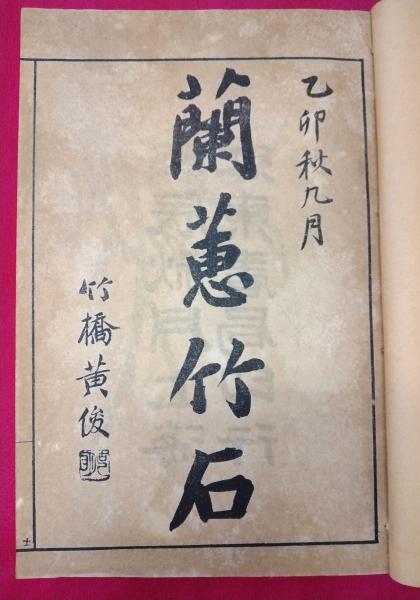 乙卯秋九月
蘭蕙竹石
竹橋黃俊